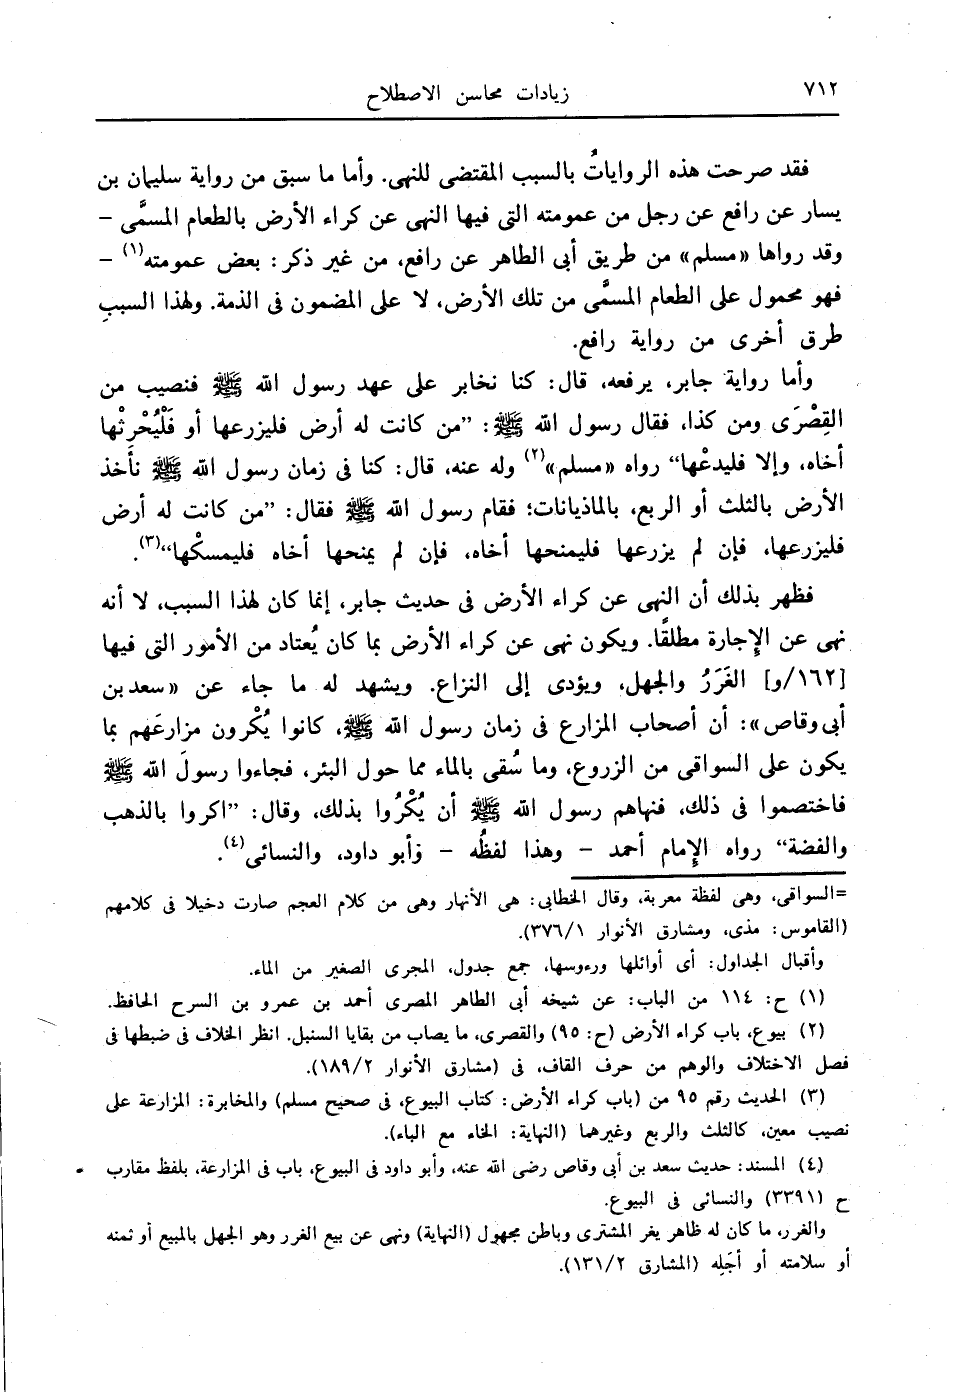 ٧١٢
زيادات محاسن الاصطلاح
فقد صرحت هذه الرواياتُ بالسبب المقتضى للنهى. وأما ما سبق من رواية سليمان بن
يسار عن رافع عن رجل من عمومته التى فيها النهى عن كراء الأرض بالطعام المسمَّى –
وقد رواها «مسلم» من طريق أبى الطاهر عن رافع، من غير ذكر: بعض عمومته(١) –
فهو محمول على الطعام المسمَّى من تلك الأرض، لا على المضمون فى الذمة. ولهذا السببِ
طرق أخرى من رواية رافع.
وأما رواية جابر، يرفعه، قال: كنا نخابر على عهد رسول الله ﷺ فنصيب من
القِصْرَى ومن كذا، فقال رسول الله ﷺ: ”من كانت له أرض فليزرعها أو فَلْيُحْرِثْها
أخاه، وإلا فليدعْها“ رواه «مسلم»(٢) وله عنه، قال: كنا فى زمان رسول الله ﷺ نأخذ
الأرض بالثلث أو الربع، بالماذيانات؛ فقام رسول الله ﷺ فقال: ”من كانت له أرض
فليزرعها، فإن لم يزرعها فليمنحها أخاه، فإن لم يمنحها أخاه فليمسكْها“(٣).
فظهر بذلك أن النهى عن كراء الأرض فى حديث جابر، إنما كان لهذا السبب، لا أنه
نهى عن الإجارة مطلقًا. ويكون نهى عن كراء الأرض بما كان يُعتاد من الأمور التى فيها
[١٦٢/و] الغَرَرُ والجهل، ويؤدى إلى النزاع. ويشهد له ما جاء عن «سعد بن
أبى وقاص»: أن أصحاب المزارع فى زمان رسول الله ﷺ، كانوا يُكْرون مزارعَهم بما
يكون على السواقى من الزروع، وما سُقى بالماء مما حول البئر، فجاءوا رسولَ الله ﷺ
فاختصموا فى ذلك، فنهاهم رسول الله ﷺ أن يُكْرُوا بذلك، وقال: ”اكروا بالذهب
والفضة“ رواه الإمام أحمد – وهذا لفظُه – وأبو داود، والنسائى(٤).
=السواقى، وهى لفظة معربة، وقال الخطابى: هى الأنهار وهى من كلام العجم صارت دخيلا فى كلامهم
(القاموس: مذى، ومشارق الأنوار ٣٧٦/١).
وأقبال الجداول: أى أوائلها ورءوسها، جمع جدول، المجرى الصغير من الماء.
(١) ح: ١١٤ من الباب: عن شيخه أبى الطاهر المصرى أحمد بن عمرو بن السرح الحافظ.
(٢) بيوع، باب كراء الأرض (ح: ٩٥) والقصرى، ما يصاب من بقايا السنبل. انظر الخلاف فى ضبطها فى
فصل الاختلاف والوهم من حرف القاف، فى (مشارق الأنوار ١٨٩/٢).
(٣) الحديث رقم ٩٥ من (باب كراء الأرض: كتاب البيوع، فى صحيح مسلم) والمخابرة: المزارعة على
نصيب معين، كالثلث والربع وغيرهما (النهاية: الخاء مع الباء).
(٤) المسند: حديث سعد بن أبى وقاص رضى الله عنه، وأبو داود فى البيوع، باب فى المزارعة، بلفظ مقارب
ح (٣٣٩١) والنسائى فى البيوع.
والغرر، ما كان له ظاهر يغر المشترى وباطن مجهول (النهاية) ونهى عن بيع الغرر وهو الجهل بالمبيع أو ثمنه
أو سلامته أو أجَلِه (المشارق ١٣١/٢).